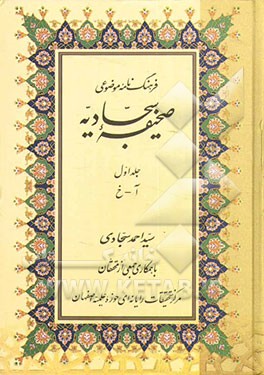 فرهنگ نامه موضوعی
صحیفه سجادیه
جلد اول
آ - خ
سید احمد سجادی
با همکاری جمعی از محققان
مرکز تحقیقات رایانه‌ای حوزه علمیه اصفهان